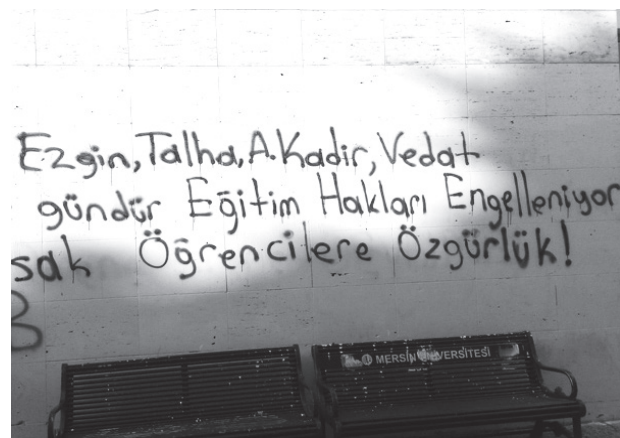 Ezgin, Talha, A.Kadir, Vedat
gündür Eğitim Hakları Engelleniyor
sak Öğrencilere Özgürlük!
MERSİN ÜNİVERSİTESİ